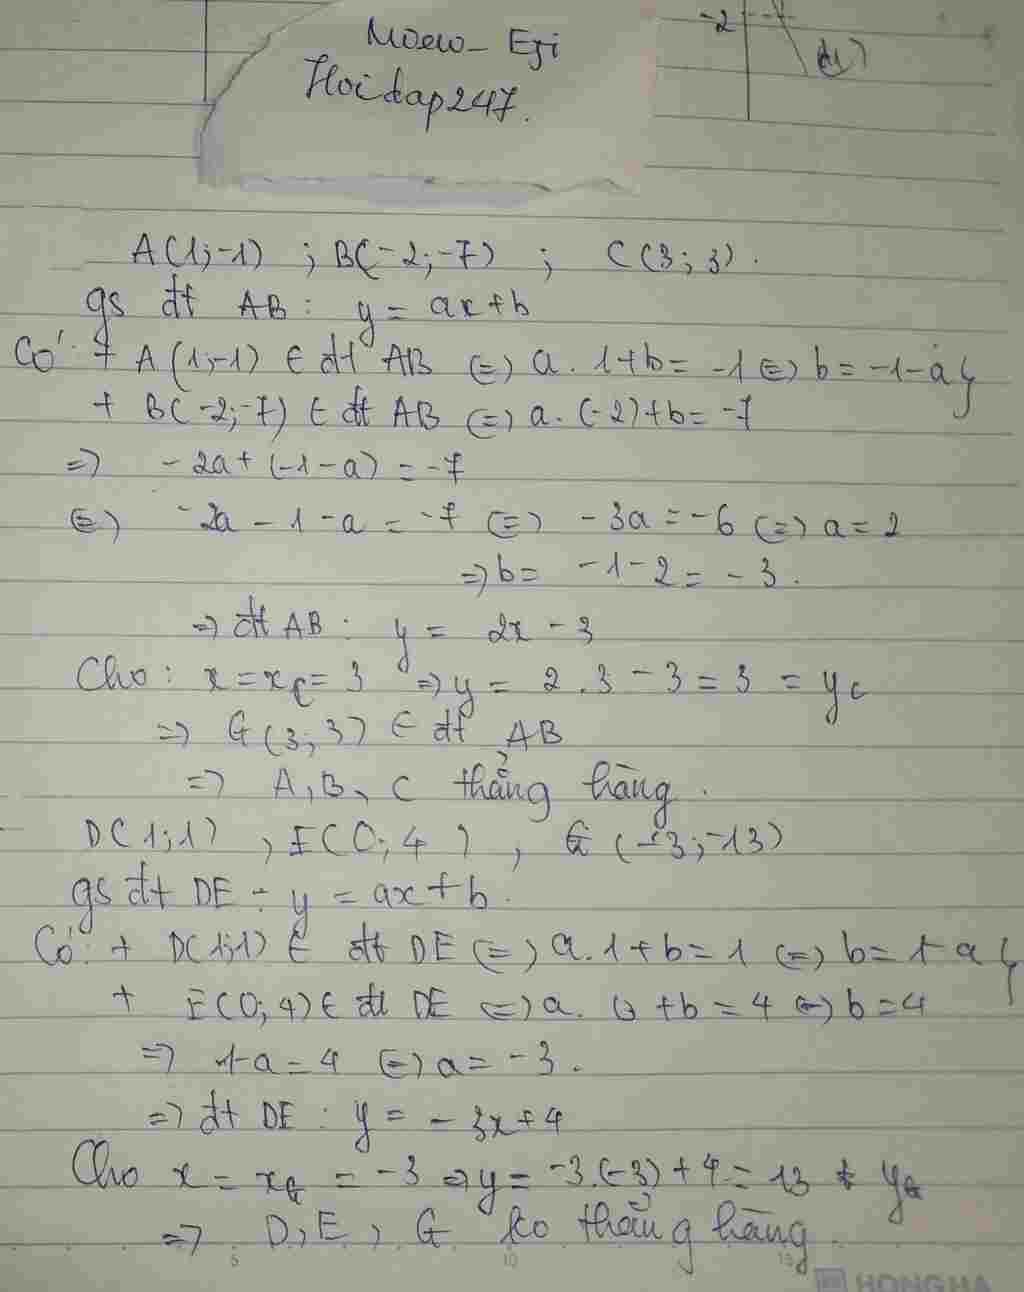 Moew - Eji
Hoidap247.
-2
(d1)
A(1;-1) ; B(-2;-7) ; C(3;3).
gs đt AB: y = ax+b
Có: + A(1;-1) ∈ đt AB (=) a.1+b = -1 (=) b = -1-a }
+ B(-2;-7) ∈ đt AB (=) a.(-2)+b = -7
=> -2a+(-1-a) = -7
(=) -2a-1-a = -7 (=) -3a = -6 (=) a = 2
=> b = -1-2 = -3.
=> đt AB: y = 2x-3
Cho: x = xC = 3 => y = 2.3-3 = 3 = yC
=> C(3;3) ∈ đt AB
=> A, B, C thẳng hàng.
D(1;1), E(0;4), G(-3;-13)
gs đt DE: y = ax+b.
Có: + D(1;1) ∈ đt DE (=) a.1+b = 1 (=) b = 1-a }
+ E(0;4) ∈ đt DE (=) a.0+b = 4 (=) b = 4
=> 1-a = 4 (=) a = -3.
=> đt DE: y = -3x+4
Cho x = xG = -3 => y = -3.(-3)+4 = 13 ≠ yG
=> D, E, G ko thẳng hàng
5 10 15
HONG HA